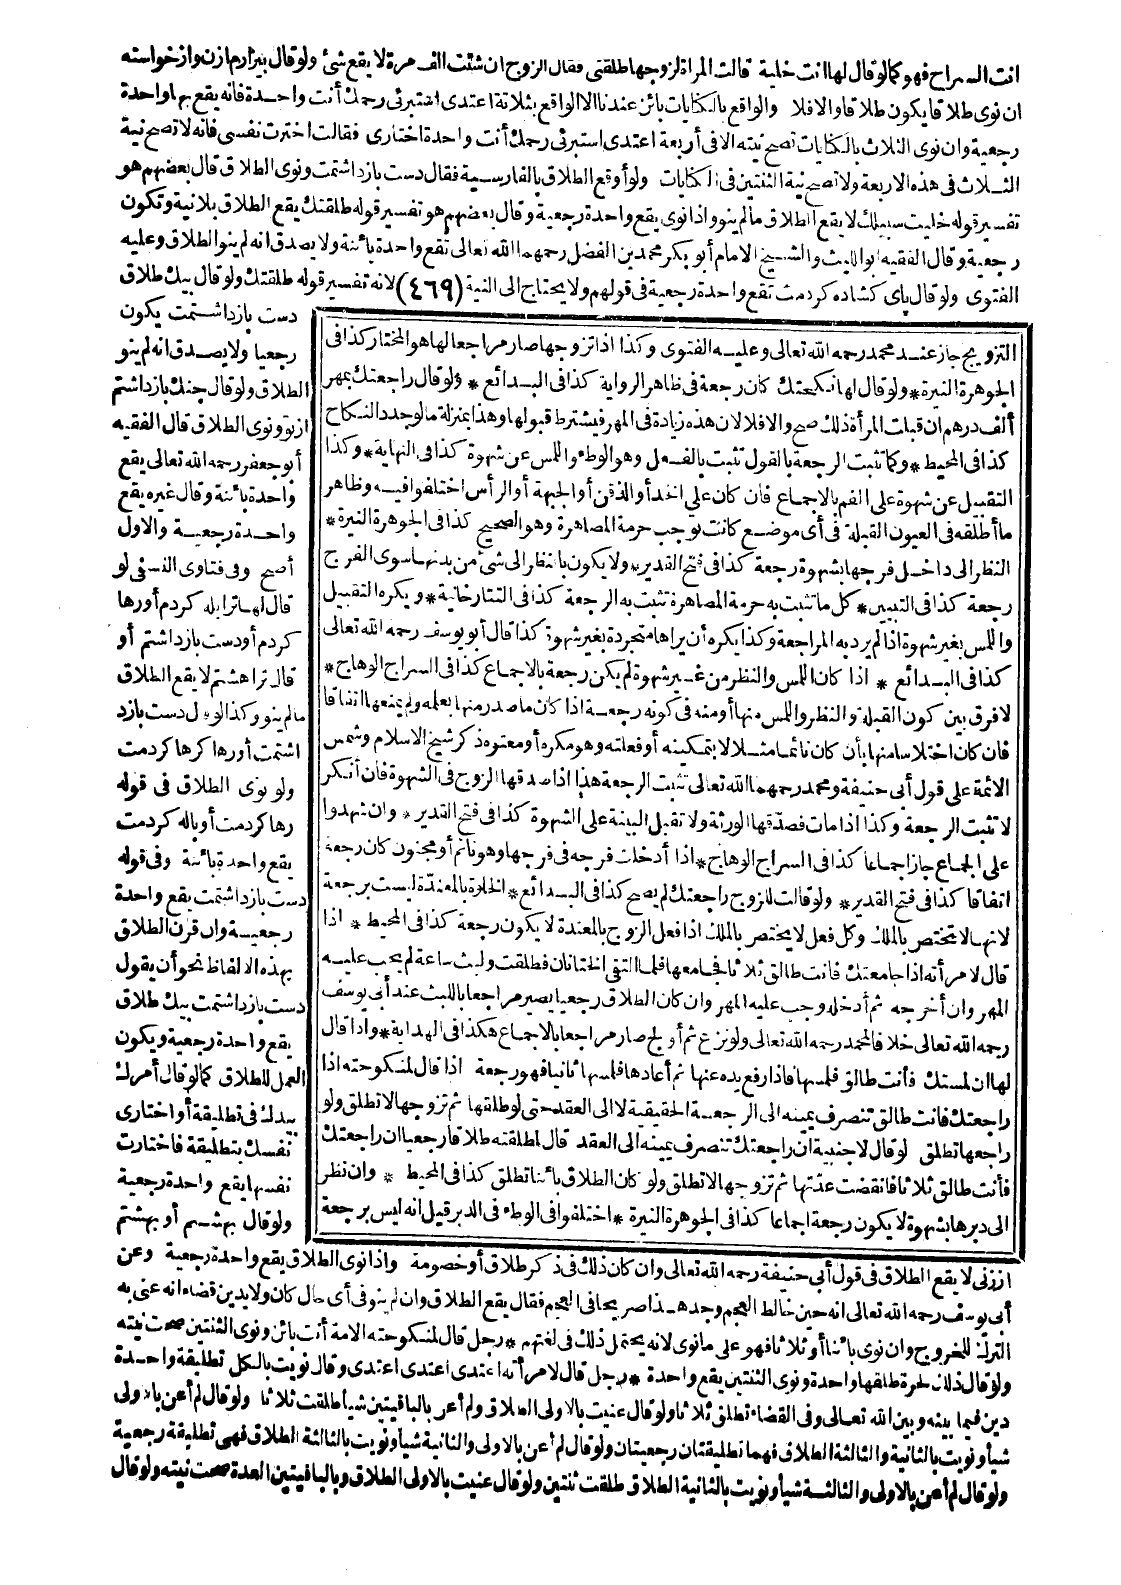 انت السراح فهو كمالو قال لها انت خلية قالت المرأة لزوجها طلقنى فقال الزوج ان شئت الف مرة لا يقع شئ ولو قال بيزارم ازن واز خواسته
ان نوى طلاقا يكون طلاقا والا فلا والواقع بالكنايات بائن عندنا الا الواقع بثلاثة اعتدى استبرئى رحمك أنت واحدة فانه يقع بها واحدة
رجعية وان نوى الثلاث بالكنايات تصح نيته الا فى أربعة اعتدى استبرئى رحمك أنت واحدة اختارى فقالت اخترت نفسى فانه لا تصح نية
الثلاث فى هذه الاربعة ولا تصح نية الثنتين فى الكنايات ولو أوقع الطلاق بالفارسية فقال دست بازداشتمت ونوى الطلاق قال بعضهم هو
تفسير قوله خليت سبيلك لا يقع الطلاق مالم ينو واذا نوى يقع واحدة رجعية وقال بعضهم هو تفسير قوله طلقتك يقع الطلاق بلانية وتكون
رجعية وقال الفقيه ابو الليث والشيخ الامام أبو بكر محمد بن الفضل رحمهما الله تعالى تقع واحدة بائنة ولا يصدق انه لم ينو الطلاق وعليه
الفتوى ولو قال پاى كشاده كردمت تقع واحدة رجعية فى قولهم ولا يحتاج الى النية (٤٦٩) لانه تفسير قوله طلقتك ولو قال بيك طلاق
دست بازداشتمت يكون
رجعيا ولا يصدق انه لم ينو
الطلاق ولو قال چنك بازداشتم
ازتو ونوى الطلاق قال الفقيه
أبو جعفر رحمه الله تعالى يقع
واحدة بائنة وقال غيره يقع
واحدة رجعية والاول
أصح وفى فتاوى النسفى لو
قال لها ترايله كردم أورها
كردم أو دست بازداشتم أو
قال ترا هشتم لا يقع الطلاق
مالم ينو وكذا لو قال دست بازد
اشتمت أورها كرها كردمت
ولو نوى الطلاق فى قوله
رها كردمت أو باله كردمت
يقع واحدة بائنة وفى قوله
دست بازداشتمت يقع واحدة
رجعية وان قرن الطلاق
بهذه الالفاظ نحو أن يقول
دست بازداشتمت بيك طلاق
يقع واحدة رجعية ويكون
العمل للطلاق كمالو قال أمرك
بيدك فى تطليقة أو اختارى
نفسك بتطليقة فاختارت
نفسها يقع واحدة رجعية
ولو قال بهشتم أو بهشتم
التزويج جاز عند محمد رحمه الله تعالى وعليه الفتوى وكذا اذا تزوجها صار مراجعا لها هو المختار كذا فى
الجوهرة النيرة * ولو قال لها نكحتك كان رجعة فى ظاهر الرواية كذا فى البدائع * ولو قال راجعتك بمهر
ألف درهم ان قبلت المرأة ذلك صح والا فلا لان هذه زيادة فى المهر فيشترط قبولها وهذا بمنزلة مالو جدد النكاح
كذا فى المحيط * وكما تثبت الرجعة بالقول تثبت بالفعل وهو الوطء واللمس عن شهوة كذا فى النهاية * وكذا
التقبيل عن شهوة على الفم بالاجماع فان كان على الخد أو الذقن أو الجبهة أو الرأس اختلفوا فيه وظاهر
ما أطلقه فى العيون القبلة فى أى موضع كانت توجب حرمة المصاهرة وهو الصحيح كذا فى الجوهرة النيرة *
النظر الى داخل فرجها بشهوة رجعة كذا فى فتح القدير * ولا يكون بالنظر الى شئ من بدنها سوى الفرج
رجعة كذا فى التبيين * كل ما تثبت به حرمة المصاهرة تثبت به الرجعة كذا فى التتارخانية * ويكره التقبيل
واللمس بغير شهوة اذا لم يرد به المراجعة وكذا يكره أن يراها متجردة بغير شهوة كذا قال أبو يوسف رحمه الله تعالى
كذا فى البدائع * اذا كان اللمس والنظر من غير شهوة لم يكن رجعة بالاجماع كذا فى السراج الوهاج *
لا فرق بين كون القبلة والنظر واللمس منها أو منه فى كونه رجعة اذا كان ما صدر منها بعلمه ولم يمنعها اتفاقا
فان كان اختلاسا منها بأن كان نائما مثلا لا بتمكينه أو فعلته وهو مكره أو معتوه ذكر شيخ الاسلام وشمس
الائمة على قول أبى حنيفة ومحمد رحمهما الله تعالى تثبت الرجعة هذا اذا صدقها الزوج فى الشهوة فان أنكر
لا تثبت الرجعة وكذا اذا مات فصدقها الورثة ولا تقبل البينة على الشهوة كذا فى فتح القدير * وان شهدوا
على الجماع جاز اجماعا كذا فى السراج الوهاج * اذا أدخلت فرجه فى فرجها وهو نائم أو مجنون كان رجعة
اتفاقا كذا فى فتح القدير * ولو قالت للزوج راجعتك لم يصح كذا فى البدائع * الخلوة بالمعتدة ليست برجعة
لانها لا تختص بالملك وكل فعل لا يختص بالملك اذا فعل الزوج بالمعتدة لا يكون رجعة كذا فى المحيط * اذا
قال لامرأته اذا جامعتك فأنت طالق ثلاثا فجامعها فلما التقى الختانان فطلقت ولبث ساعة لم يجب عليه
المهر وان أخرجه ثم أدخله وجب عليه المهر وان كان الطلاق رجعيا يصير مراجعا باللبث عند أبى يوسف
رحمه الله تعالى خلافا لمحمد رحمه الله تعالى ولو نزع ثم أولج صار مراجعا بالاجماع هكذا فى الهداية * واذا قال
لها ان لمستك فأنت طالق فلمسها فاذا رفع يده عنها ثم أعادها فلمسها ثانيا فهو رجعة اذا قال لمنكوحته اذا
راجعتك فانت طالق تنصرف يمينه الى الرجعة الحقيقية لا الى العقد حتى لو طلقها ثم تزوجها لا تطلق ولو
راجعها تطلق لو قال لاجنبية ان راجعتك تنصرف يمينه الى العقد قال لمطلقته طلاقا رجعيا ان راجعتك
فأنت طالق ثلاثا فانقضت عدتها ثم تزوجها لا تطلق ولو كان الطلاق بائنا تطلق كذا فى المحيط * وان نظر
الى دبرها بشهوة لا يكون رجعة اجماعا كذا فى الجوهرة النيرة * اختلفوا فى الوطء فى الدبر قيل انه ليس برجعة
اززنى لا يقع الطلاق فى قول أبى حنيفة رحمه الله تعالى وان كان ذلك فى ذكر طلاق أو خصومة واذا نوى الطلاق يقع واحدة رجعية وعن
أبى يوسف رحمه الله تعالى انه حين خالط العجم وجد هذا صريحا فى العجم فقال يقع الطلاق وان لم ينو فى أى حال كان ولا يدين قضاء انه عنى به
الترك للخروج وان نوى بائنا أو ثلاثا فهو على ما نوى لانه يحتمل ذلك فى لغتهم * رجل قال لمنكوحته الامة أنت بائن ونوى الثنتين صحت نيته
ولو قال ذلك لحرة طلقها واحدة ونوى الثنتين يقع واحدة * رجل قال لامرأته اعتدى اعتدى اعتدى وقال نويت بالكل تطليقة واحدة
دين فيما بينه وبين الله تعالى وفى القضاء تطلق ثلاثا ولو قال عنيت بالاولى الطلاق ولم أعن بالباقيتين شيأ طلقت ثلاثا ولو قال لم أعن بالاولى
شيأ ونويت بالثانية والثالثة الطلاق فهما تطليقتان رجعيتان ولو قال لم أعن بالاولى والثانية شيأ ونويت بالثالثة الطلاق فهى تطليقة رجعية
ولو قال لم أعن بالاولى والثالثة شيأ ونويت بالثانية الطلاق طلقت ثنتين ولو قال عنيت بالاولى الطلاق وبالباقيتين العدة صحت نيته ولو قال